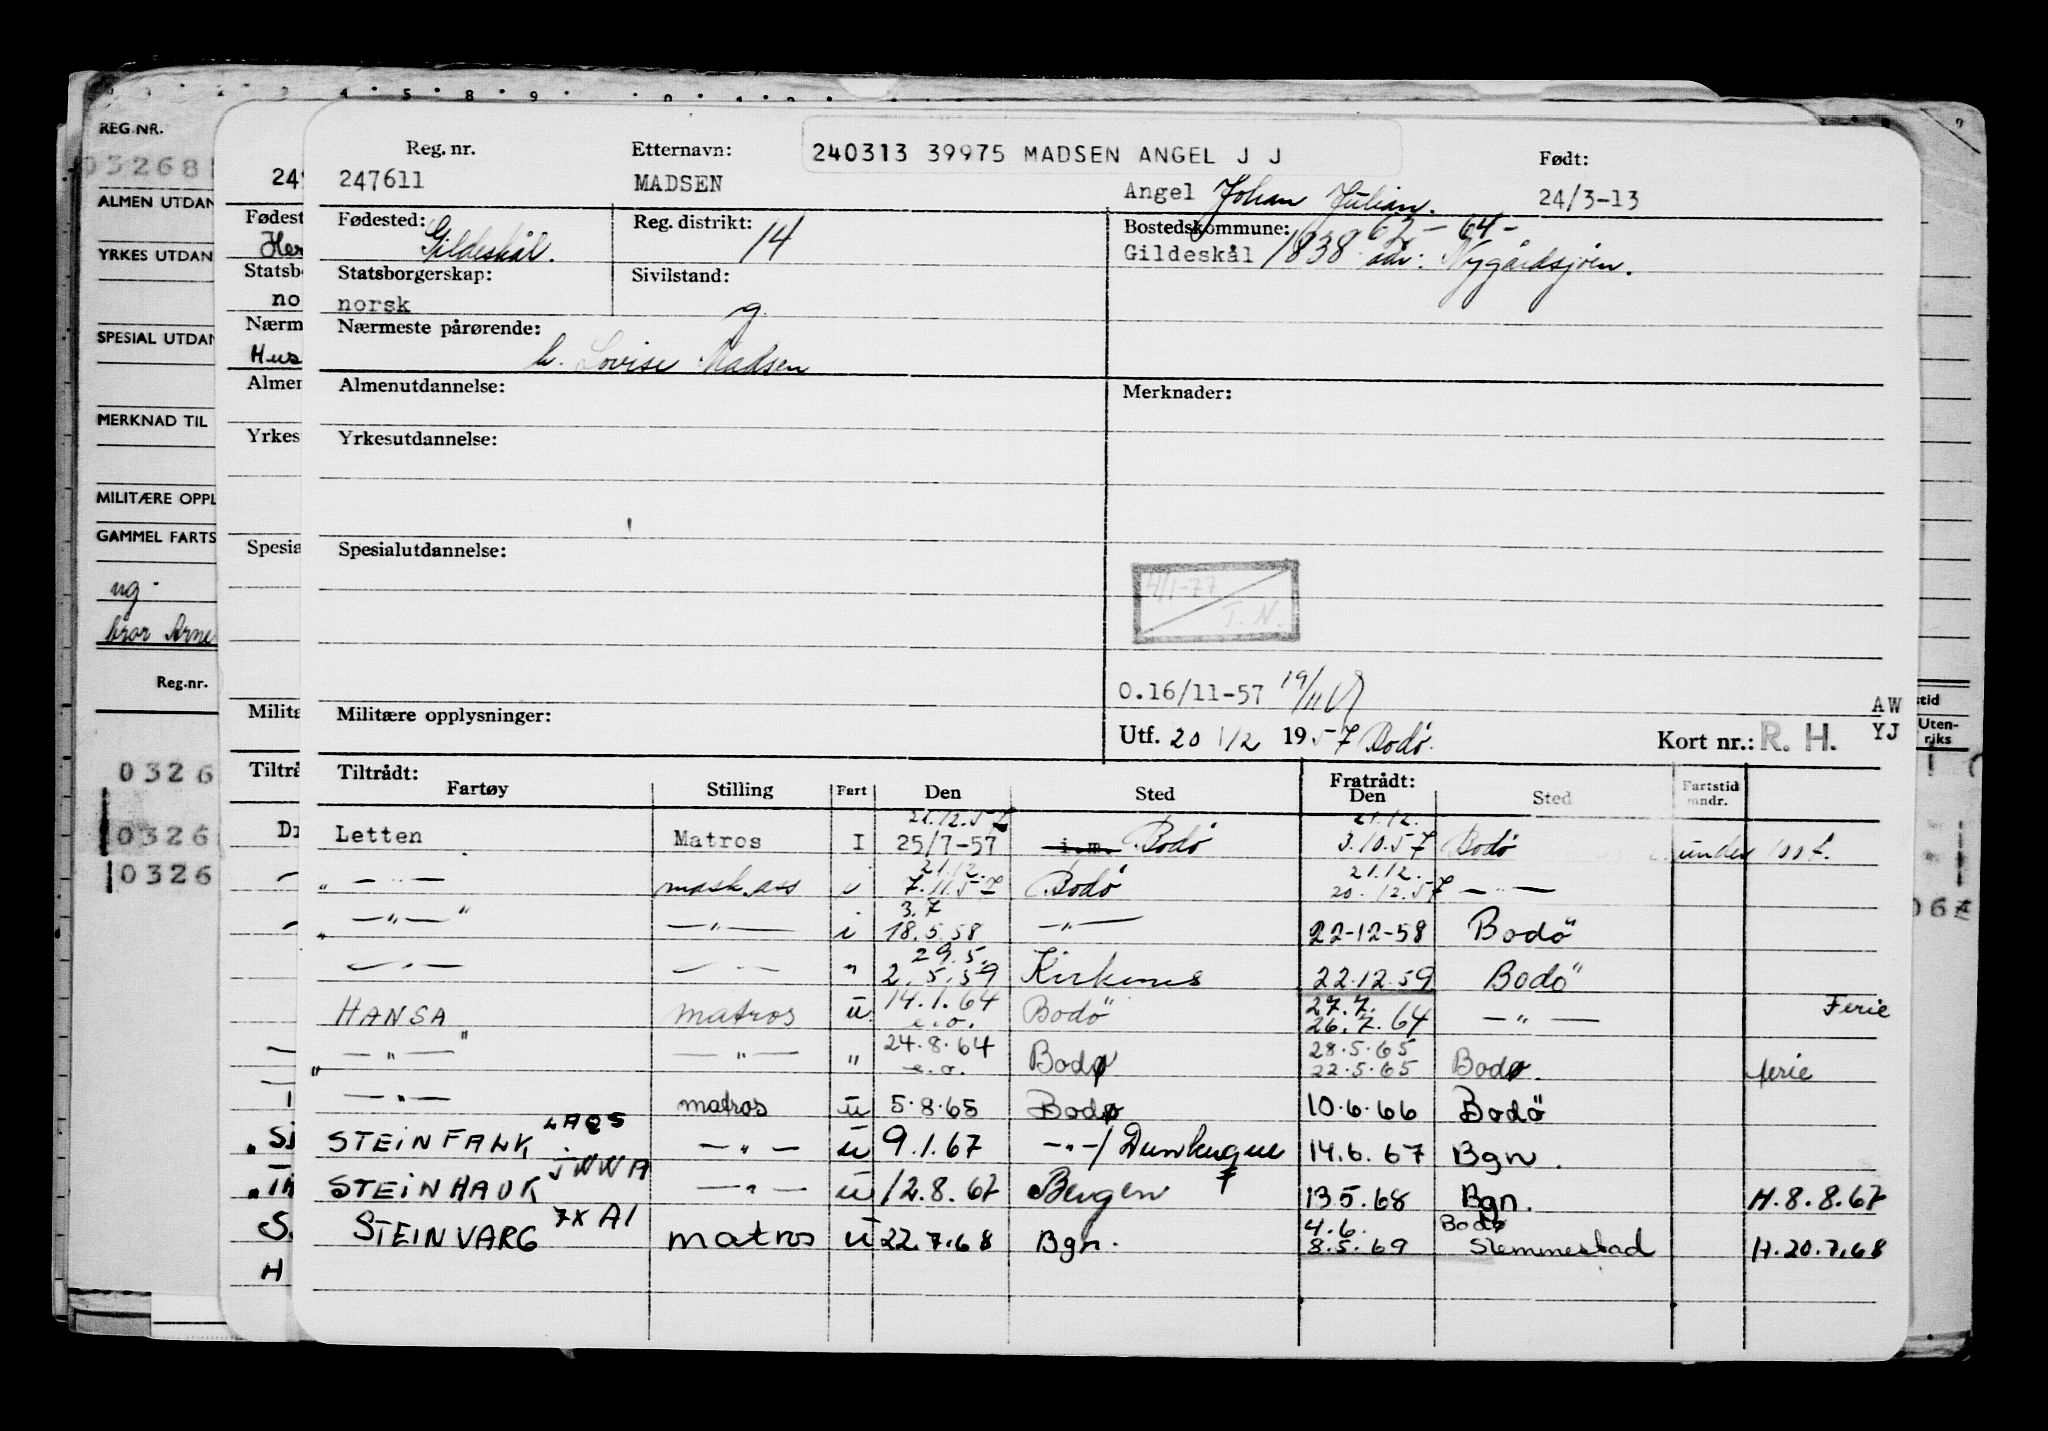 REG.NR.
03268
ALMEN UTDAN
YRKES UTDAN
SPESIAL UTDAN
MERKNAD TIL
MILITÆRE OPPL
GAMMEL FARTS
ug.
bror Arne
Reg.nr.
0326
0326
0326
Fødest
Her
Statsb
no
Nærm
Hus
Almen
Yrkes
Spesia
Milita
Tiltrå
240313 39975 MADSEN ANGEL J J
Reg. nr. Etternavn: Født:
247611 MADSEN Angel Johan Julian. 24/3-13
Fødested: Gildeskål. Reg. distrikt: 14 Bostedskommune: 62 - 64 -
Gildeskål 1838 adr: Nygårdsjøen.
Statsborgerskap: Sivilstand:
norsk g.
Nærmeste pårørende:
h. Lovise Madsen
Almenutdannelse: Merknader:
Yrkesutdannelse:
Spesialutdannelse:
4/1-77
T. N.
O.16/11-57 19/11
AW
Militære opplysninger: Utf. 20 1/2 1957 Bodø. Kort nr.: R. H. YJ
Tiltrådt: Fratrådt:
Fartøy Stilling Fart Den Sted Den Sted Fartstid mndr.
21.12.57 21.12.
Letten Matros I 25/7-57 i.m. Bodø 3.10.57 Bodø under 100 t.
21.12. 21.12.
" — " — mask.ass i 7.11.57 Bodø 20.12.57 — " —
3.7
" — " — " — " — i 18.5.58 — " — 22-12-58 Bodø
29.5.
— " — — " — " 2.5.59 Kirkenes 22.12.59 Bodø
14.1.64 27.7. Ferie
HANSA matros u e.o. Bodø 26.7.64 — " —
24.8.64 28.5.65
" — " — " — " — " e.o. Bodø 22.5.65 Bodø. ferie
— " — matros u 5.8.65 Bodø 10.6.66 Bodø
STEINFALK LAQS — " — u 9.1.67 — " —/ Dunkuque 14.6.67 Bgn.
STEINHAUK JWWA — " — u 12.8.67 Bergen 13.5.68 Bgn. H.8.8.67
4.6. Bodø
STEINVARG 7XAI matros u 22.7.68 Bgn. 8.5.69 Slemmestad H.20.7.68